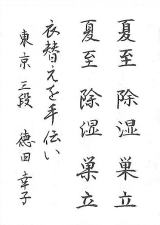 夏至　除湿　巣立
夏至　除湿　巣立
衣替えを手伝い
東京　三段　徳田　幸子